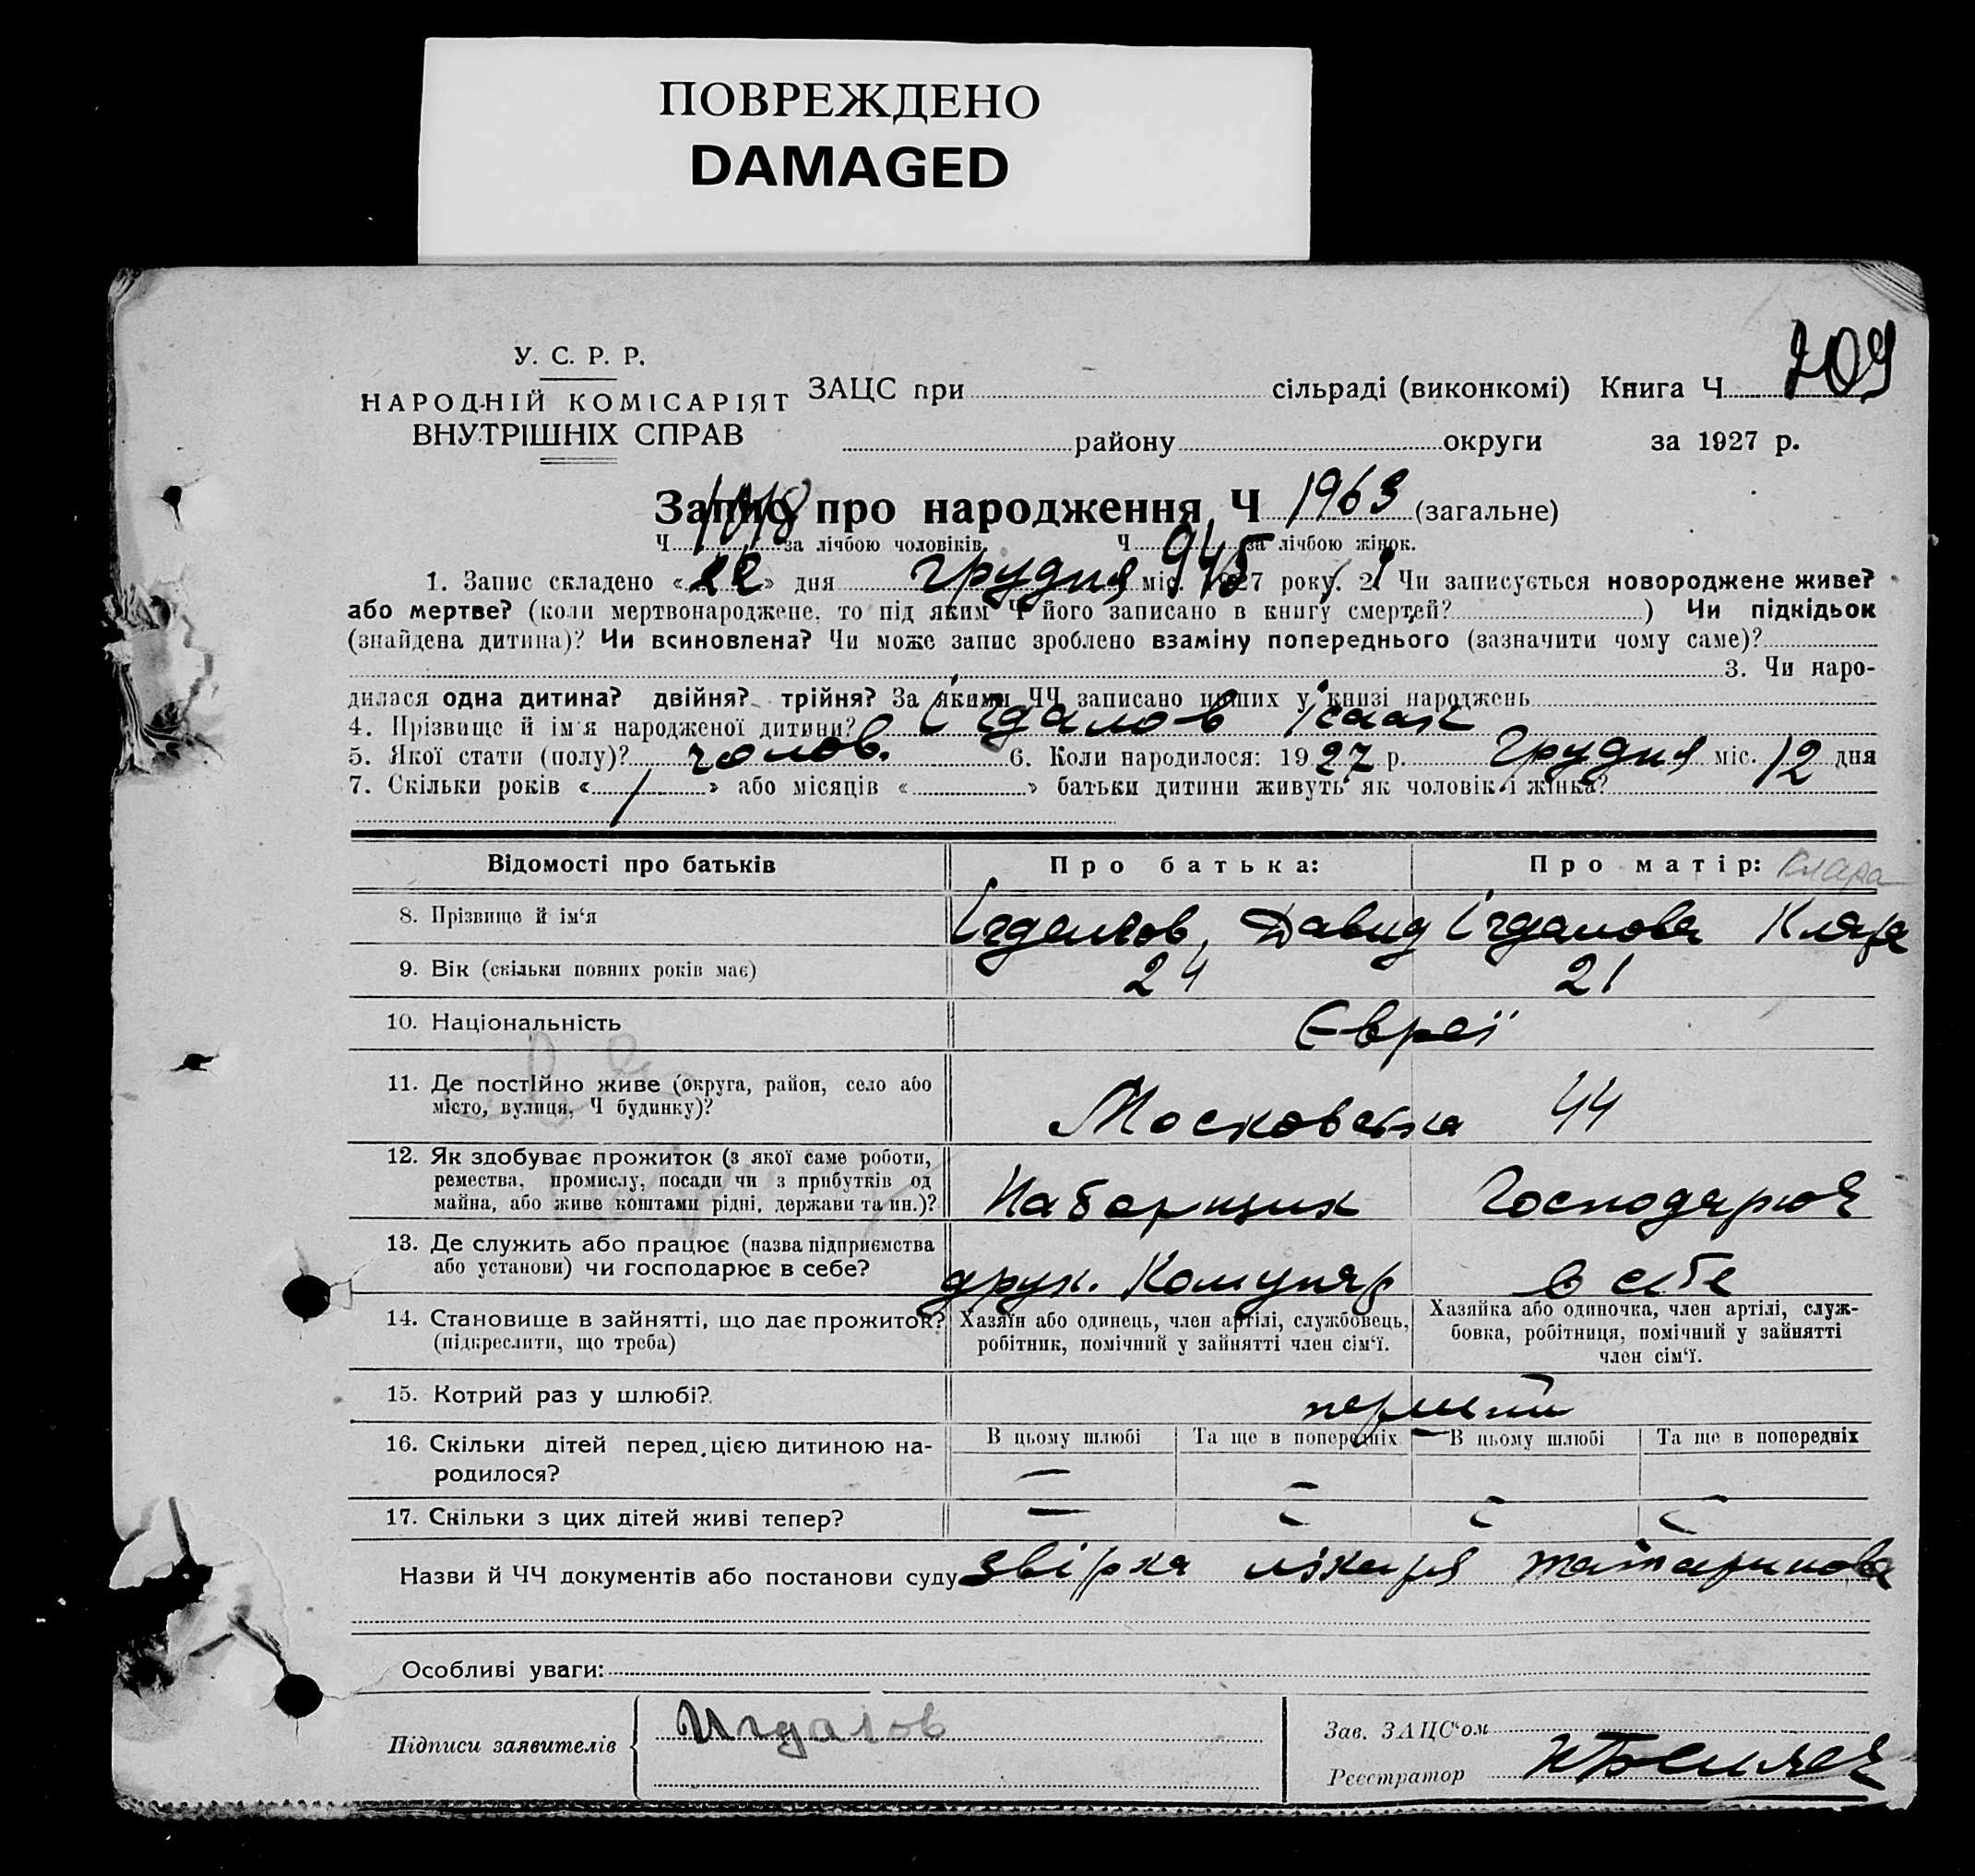 ПОВРЕЖДЕНО
DAMAGED
У. С. Р. Р.
НАРОДНІЙ КОМІСАРІЯТ
ВНУТРІШНІХ СПРАВ
ЗАЦС при сільраді (виконкомі) Книга Ч 209
району округи за 1927 р.
Запис про народження Ч 1963 (загальне)
Ч 1018 за лічбою чоловіків Ч 945 за лічбою жінок.
1. Запис складено «22» дня грудня міс. 1927 року. 2. Чи записується новороджене живе?
або мертве? (коли мертвонароджене, то під яким Ч його записано в книгу смертей? ) Чи підкідьок
(знайдена дитина)? Чи всиновлена? Чи може запис зроблено взаміну попереднього (зазначити чому саме)?
3. Чи наро-
дилася одна дитина? двійня? трійня? За якими ЧЧ записано инших у книзі народжень
4. Прізвище й ім'я народженої дитини? Ігдалов Ісаак
5. Якої стати (полу)? чолов. 6. Коли народилося: 1927 р. Грудня міс. 12 дня
7. Скільки років « 1 » або місяців « » батьки дитини живуть як чоловік і жінка?
Відомості про батьків Про батька: Про матір: Клара
8. Прізвище й ім'я Ігдалов, Давид Ігдалова Клара
9. Вік (скільки повних років має) 24 21
10. Національність Євреї
11. Де постійно живе (округа, район, село або
місто, вулиця, Ч будинку)? Московська 44
12. Як здобуває прожиток (з якої саме роботи,
ремества, промислу, посади чи з прибутків од
майна, або живе коштами рідні, держави та ин.)? Наборщик Господарює
13. Де служить або працює (назва підприємства
або установи) чи господарює в себе? друк. Комунар в себе
14. Становище в зайнятті, що дає прожиток? Хазяїн або одинець, член артілі, службовець, Хазяйка або одиночка, член артілі, служ-
(підкреслити, що треба) робітник, помічний у зайнятті член сім'ї. бовка, робітниця, помічний у зайнятті
член сім'ї.
15. Котрий раз у шлюбі? перший
16. Скільки дітей перед цією дитиною на- В цьому шлюбі Та ще в попередніх В цьому шлюбі Та ще в попередніх
родилося? — —
17. Скільки з цих дітей живі тепер? — — — —
Назви й ЧЧ документів або постанови суду звірка лікаря Татаринова
Особливі уваги:
Підписи заявителів Игдалов
Зав. ЗАЦС'ом
Реєстратор